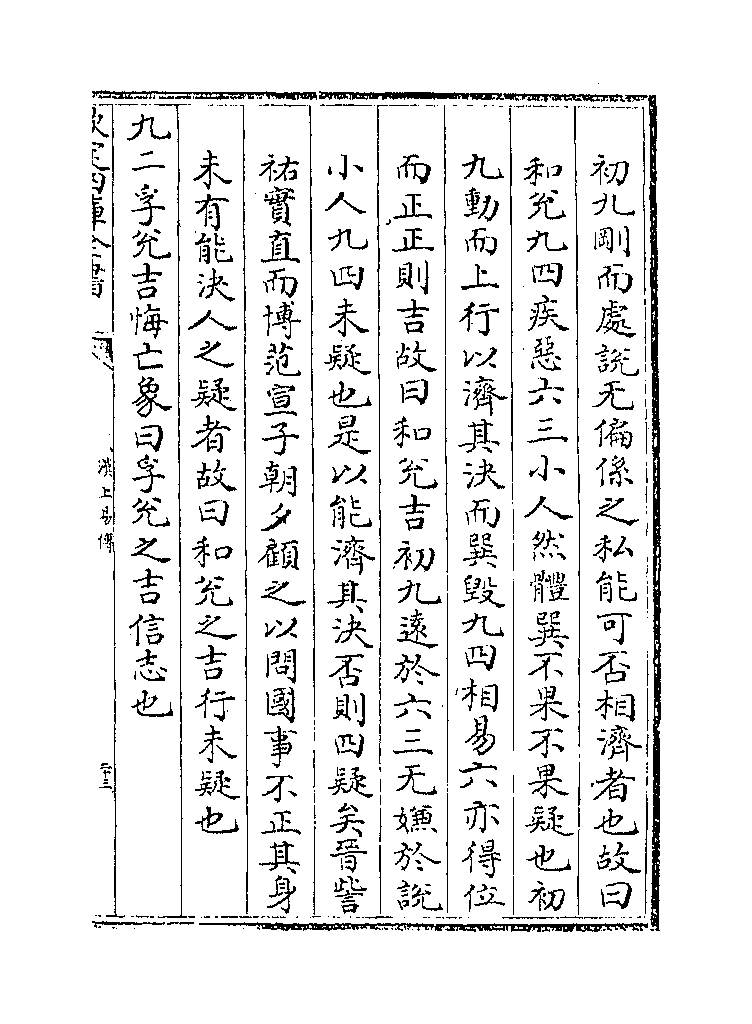 初九剛而處說无偏係之私能可否相濟者也故曰
和兊九四疾惡六三小人然體巽不果不果疑也初
九動而上行以濟其決而巽毀九四相易六亦得位
而正正則吉故曰和兊吉初九逺於六三无嫌於說
小人九四未疑也是以能濟其決否則四疑矣晉訾
祐實直而博范宣子朝夕顧之以問國事不正其身
未有能決人之疑者故曰和兊之吉行未疑也
九二孚兊吉悔亡象曰孚兊之吉信志也
欽定四庫全書
漢上易傳
二十三